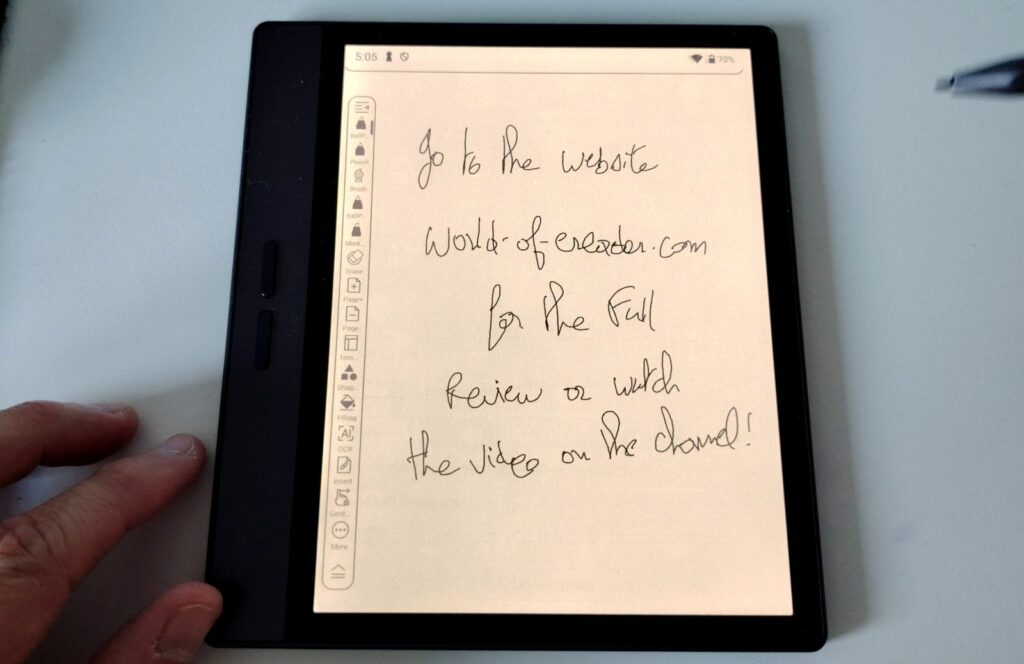 5:05
70%
BallP...
Pencil
Brush
BallP...
Mark...
Erase
Page+
Page-
Shap...
Filling
AI
OCR
Insert
Gest...
More
Go to the website
world-of-ereader.com
for the Full
Review or watch
the video on the channel!